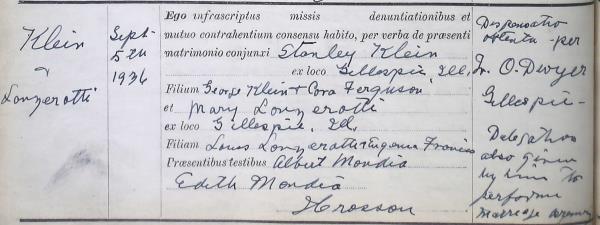 Klein
&
Lonzerotti
Sept
5th
1936
Ego infrascriptus missis denuntiationibus et
mutuo contrahentium consensu habito, per verba de præsenti
matrimonio conjunxi Stanley Klein
ex loco Gillespie, Ill.
Filium George Klein + Cora Ferguson
et Mary Lonzerotti
ex loco Gillespie, Ill.
Filiam Louis Lonzerotti + Eugenia Francisco
Præsentibus testibus Albert Mondia
Edith Mondia
Dispensatio
obtenta - per
Fr. O. Dwyer
Gillespie -
Delegation
also given
by him to
perform
marriage